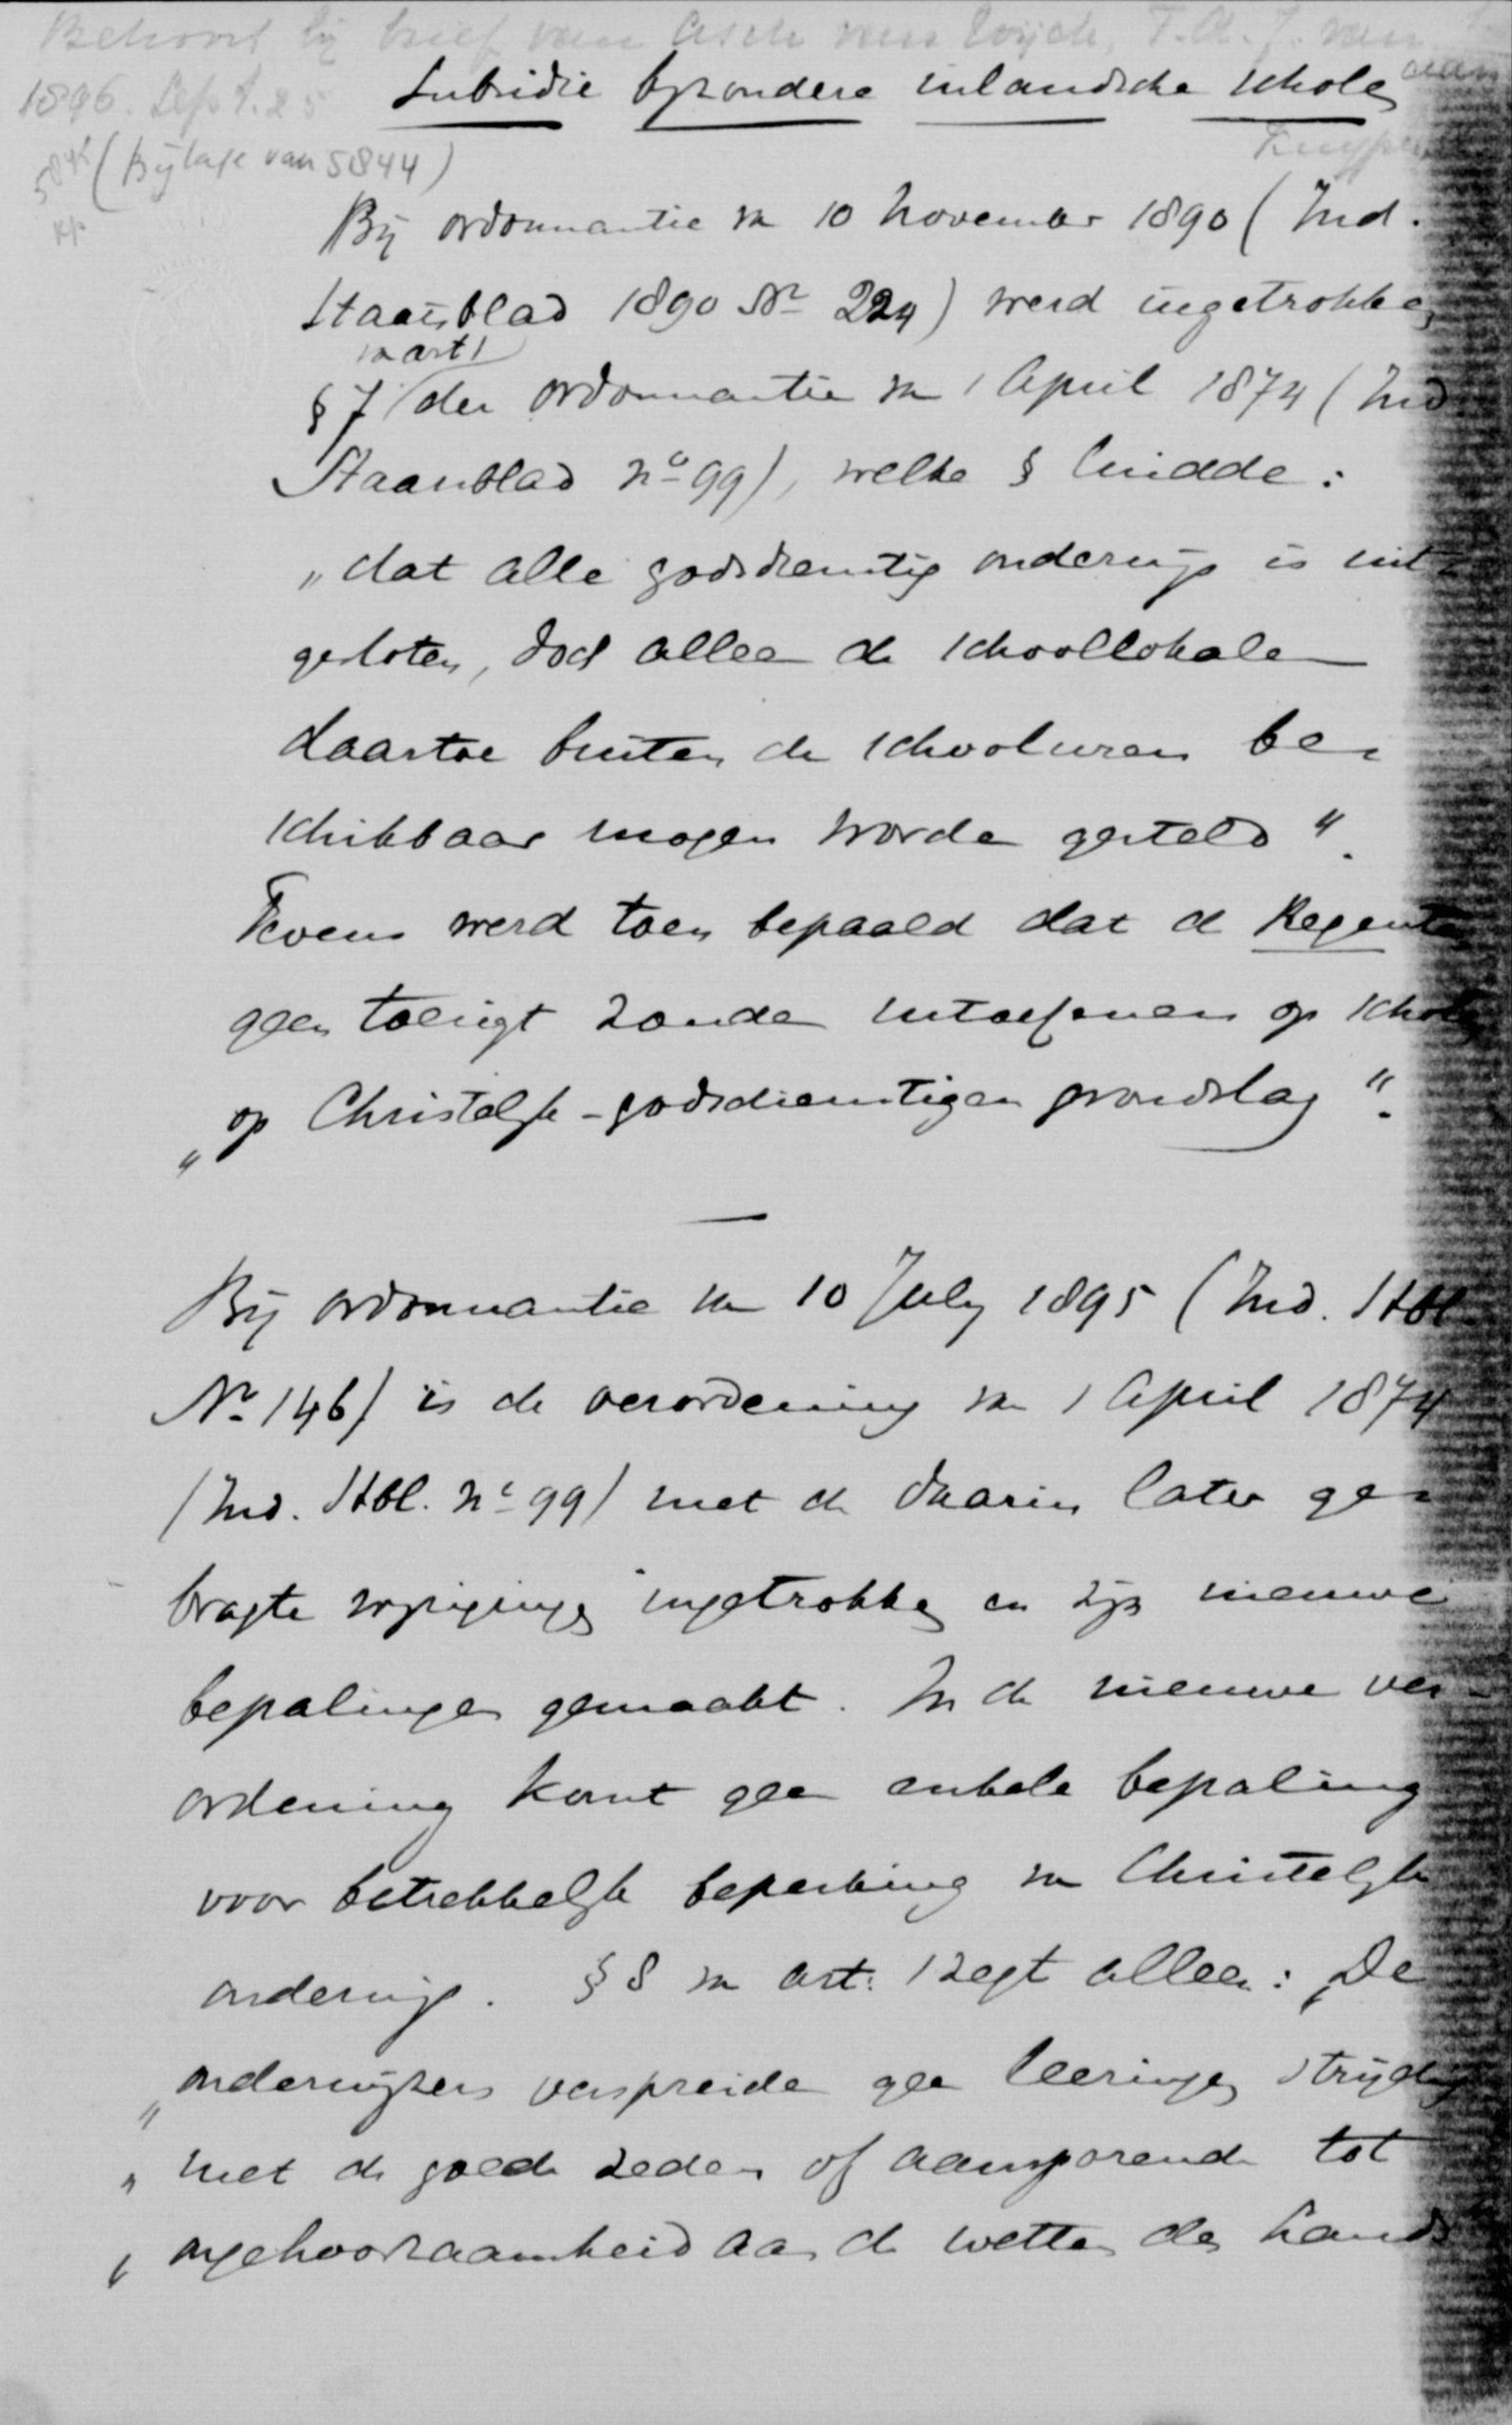 Behoort bij brief van Asch van Wijck, T.A.J. van
1896. Sept. 25 aan
Kuyper
(Bijlage van 5844)
Subsidie byzondere inlandsche scholen
Bij ordonnantie van 10 November 1890 (Ind.
Staatsblad 1890 No 224) werd ingetrokken
van art 1
§ 7 der ordonnantie van 1 April 1874 (Ind
Staatsblad no 99), welke § luidde:
„dat alle godsdienstig onderwijs is uit-
gesloten, doch alleen de schoollokalen
daartoe buiten de schooluren be-
schikbaar mogen worden gesteld".
Tevens werd toen bepaald dat de Regenten
geen toezigt zouden uitoefenen op scholen
„op Christelijk-godsdienstigen grondslag".
Bij ordonnantie van 10 July 1895 (Ind. Stbl
No 146) is de verordening van 1 April 1874
(Ind. Stbl. no 99) met de daarin later ge-
bragte wijzigingen ingetrokken en zijn nieuwe
bepalingen gemaakt. In de nieuwe ver-
ordening komt geen enkele bepaling
voor betrekkelijk beperking van Christelijk
onderwijs. § 8 van art. 1 zegt alleen: „De
„onderwijzers verspreiden geen leeringen strijdig
„met de goede zeden of aansporende tot
„ongehoorzaamheid aan de wetten des lands